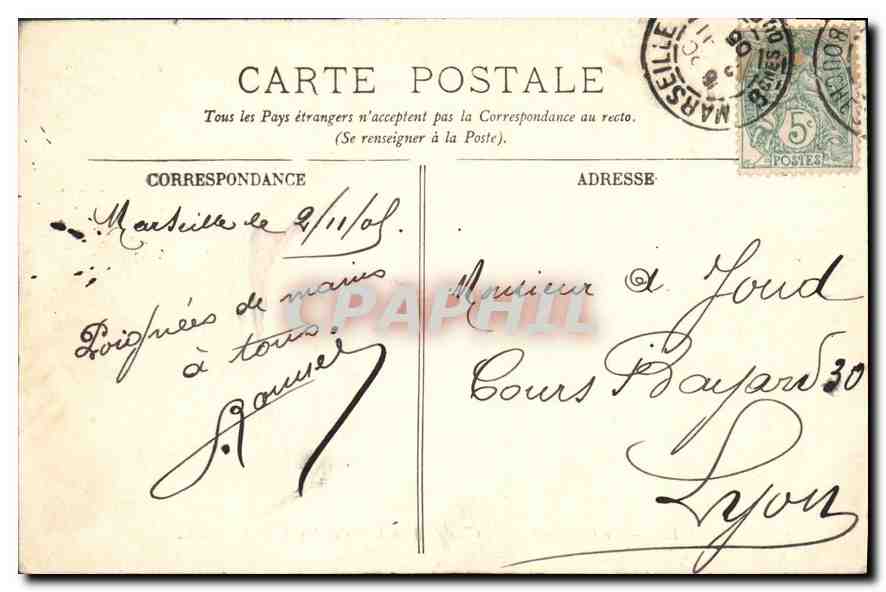 CARTE POSTALE
Tous les Pays étrangers n'acceptent pas la Correspondance au recto.
(Se renseigner à la Poste).
CORRESPONDANCE
ADRESSE
MARSEILLE
BOUCHE
5c
POSTES
Marseille le 2/11/05
Poignées de mains
à tous.
Monsieur A Joud
Cours Bayard 30
Lyon
CPAPHIL